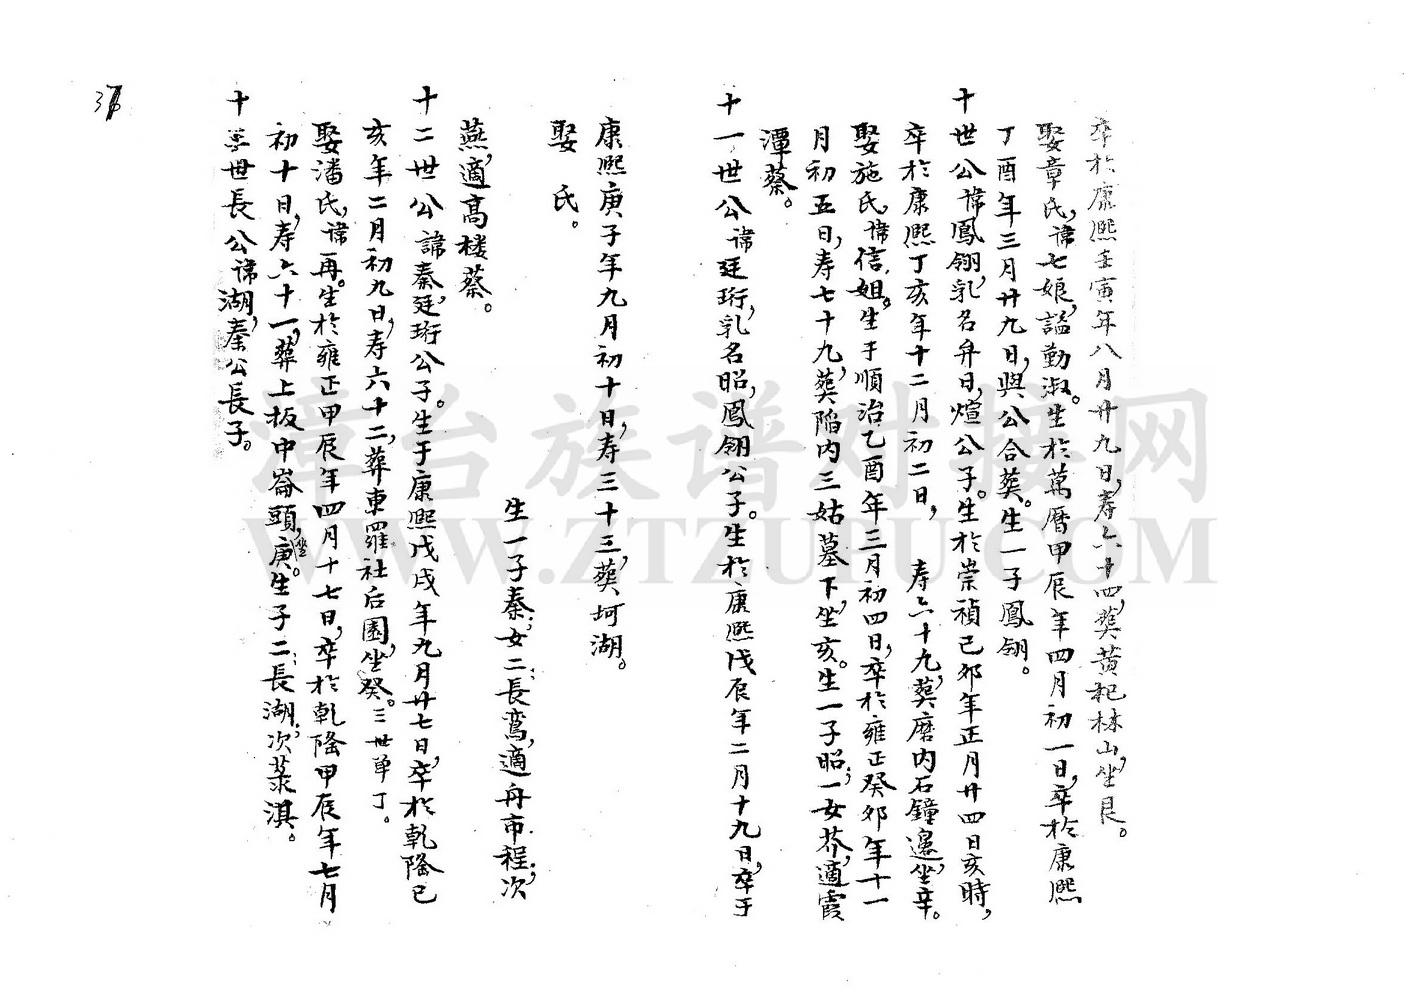 卒於康熙壬寅年八月廿九日，寿六十四，葬黄杞林山，坐艮。
娶章氏，諱七娘，謚勤淑。生於萬曆甲辰年四月初一日，卒於康熙
丁酉年三月廿九日，與公合葬。生一子鳳翎。
十世公諱鳳翎，乳名弁日，煊公子。生於崇禎己卯年正月廿四日亥時，
卒於康熙丁亥年十二月初二日，寿六十九，葬磨内石鐘邊，坐辛。
娶施氏，諱信姐。生于順治乙酉年三月初四日，卒於雍正癸卯年十一
月初五日，寿七十九，葬陷内三姑墓下，坐亥。生一子昭；一女芥，適霞
潭蔡。
十一世公諱廷珩，乳名昭，鳳翎公子。生於康熙戊辰年二月十九日，卒于
康熙庚子年九月初十日，寿三十三，葬坷湖。
娶 氏。
生一子秦；女二：長鸾，適舟市程；次
燕，適高楼蔡。
十二世公諱秦，廷珩公子。生于康熙戊戌年九月廿七日，卒於乾隆己
亥年二月初九日，寿六十二，葬東羅社后園，坐癸。三世单丁。
娶潘氏，諱再。生於雍正甲辰年四月十七日，卒於乾隆甲辰年七月
初十日，寿六十一，葬上板中崙頭，坐庚。生子二：長湖；次菉淇。
十三世長公諱湖，秦公長子。
漳台族谱对接网
WWW.ZTZUPU.COM